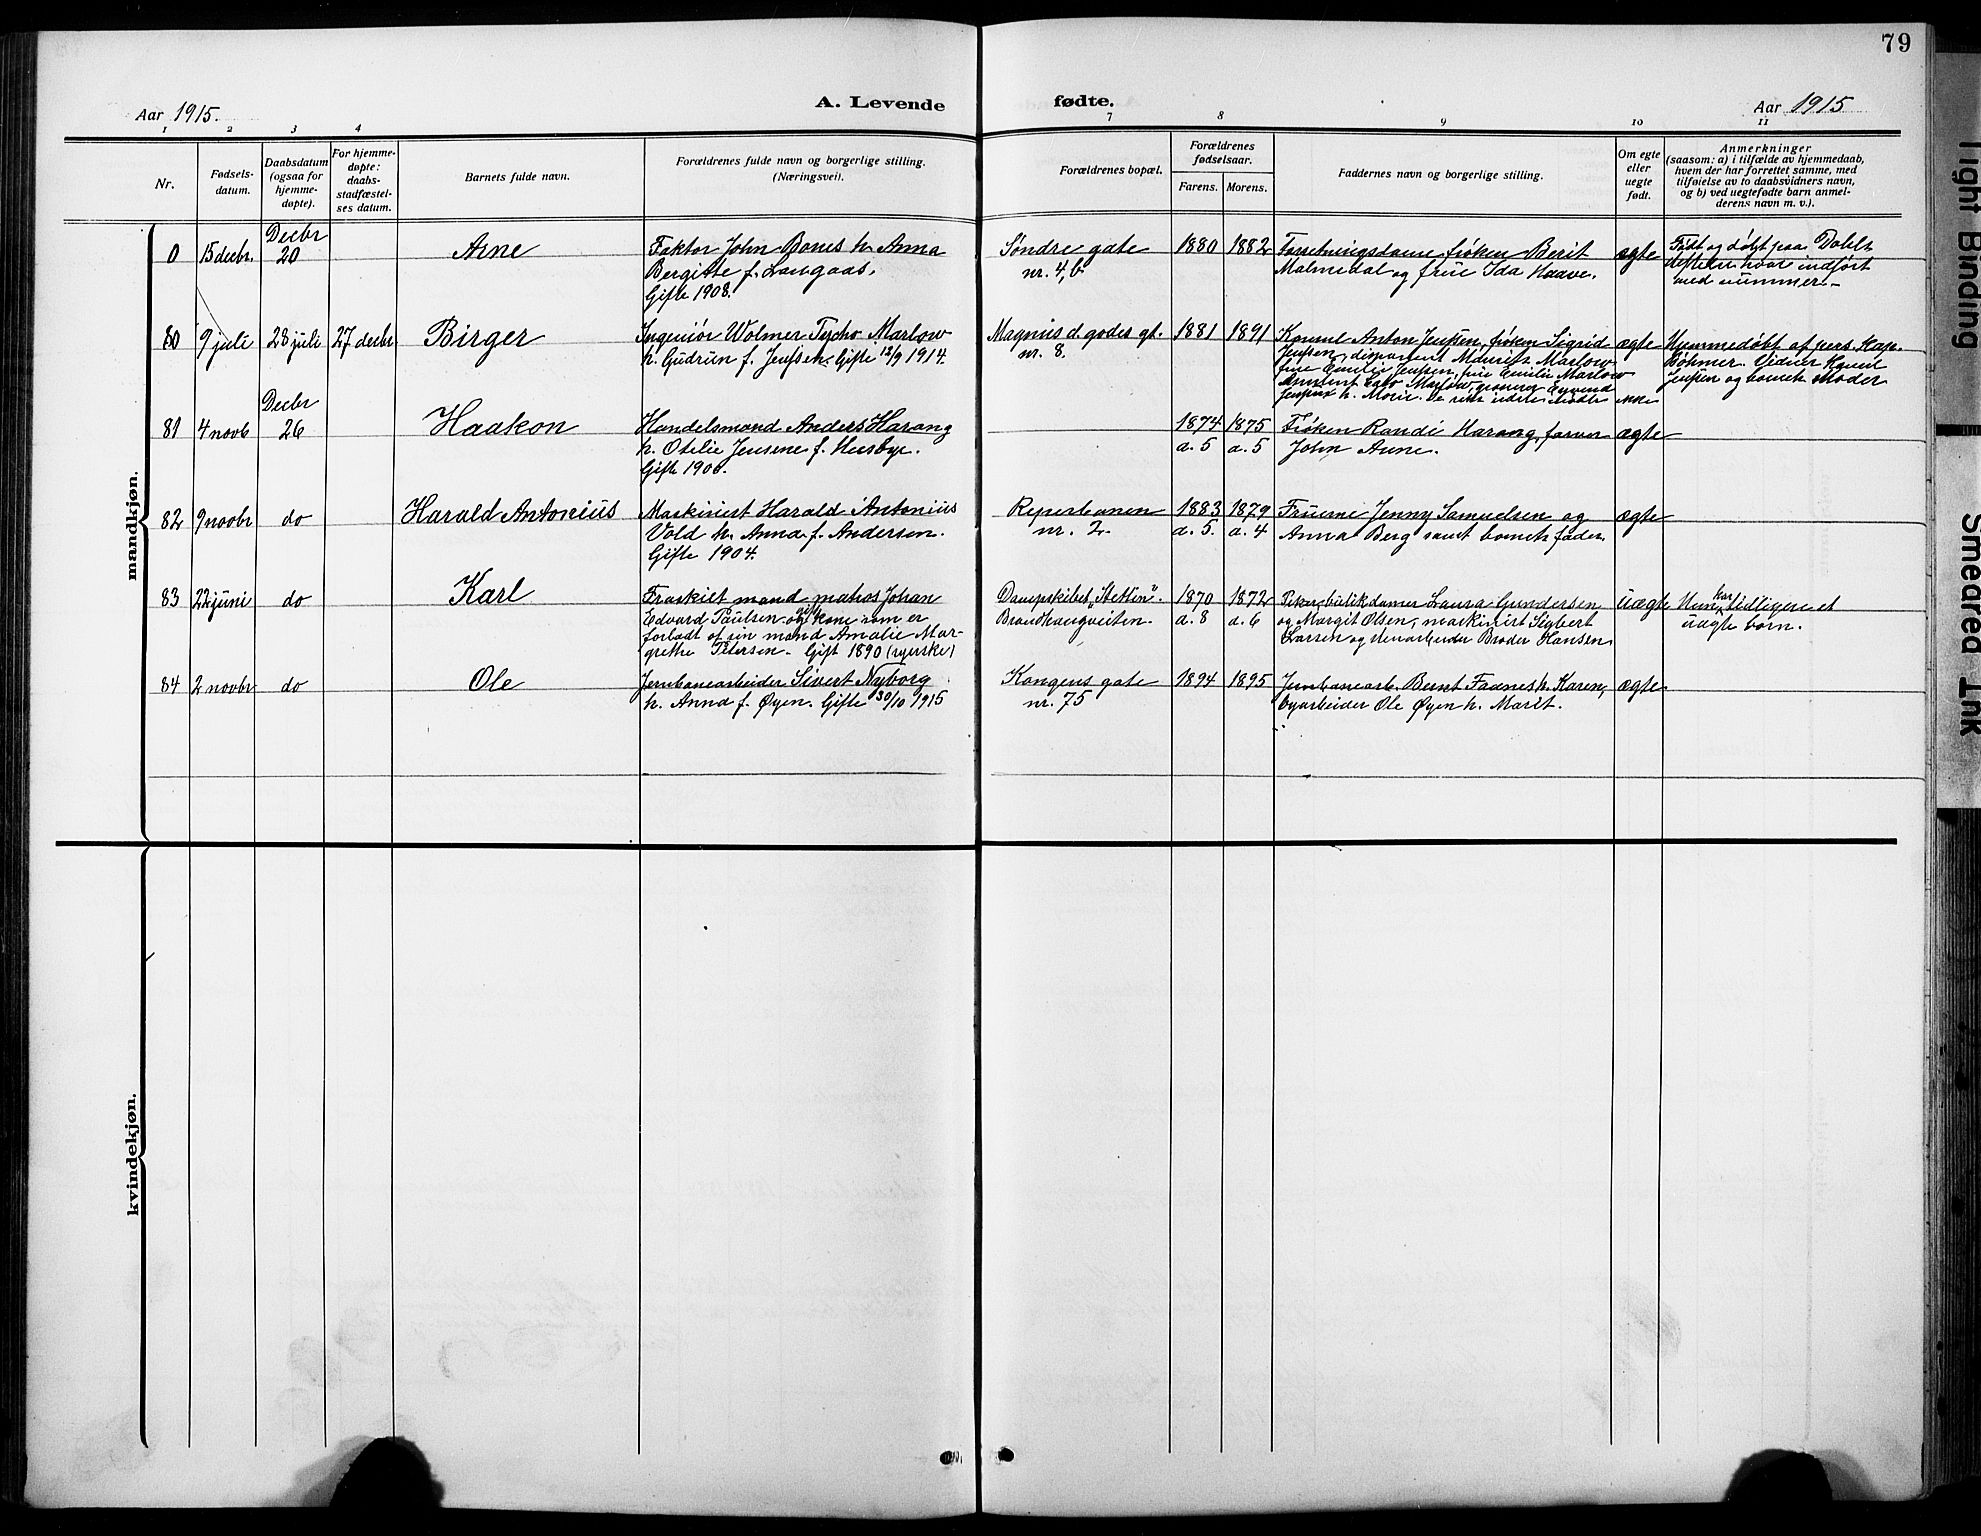 79
Aar 1915.
A. Levende
fødte.
Aar 1915
1 2 3 4 7 8 9 10 11
Nr.
Fødsels-
datum.
Daabsdatum
(ogsaa for
hjemme-
døpte).
For hjemme-
døpte:
daabs-
stadfæstel-
ses datum.
Barnets fulde navn.
Forældrenes fulde navn og borgerlige stilling.
(Næringsvei).
Forældrenes bopæl.
Forældrenes
fødselsaar.
Farens. Morens.
Faddernes navn og borgerlige stilling.
Om egte
eller
uegte
født.
Anmerkninger
(saasom: a) i tilfælde av hjemmedaab,
hvem der har forrettet samme, med
tilføielse av to daabsvidners navn,
og b) ved uegtefødte barn anmel-
derens navn m. v.).
mandkjøn.
0
15 decbr.
Decbr
20
Arne
Faktor John Bones h. Anna
Bergitte f. Langaas.
Gifte 1908.
Søndre gate
nr. 4, b
1880
1882
Forretningsdame frøken Berit
Malmedal og frue Ida Haave.
ægte
Født og døbt paa
hvor indført
med nummer.
80
9 juli
23 juli
27 decbr
Birger
Ingeniør Wolmer Tycho Marlow
h. Gudrun f. Jenssen. Gifte 12/9 1914.
Magnus d. godes gt.
nr. 8.
1881
1891
Konsul Anton Jenssen, frøken Sigrid
Jenssen, disponent Mauritz Marlow
frue Emilie Jenssen, frue Emilie Marlow
Marlow, grosserer Eyvind
Jenssen h. Marie. De sidste
ikke
ægte
Hjemmedøbt af pers. Kap.
Bøhmer. Vidner Konsul
Jenssen og barnets Moder
81
4 novb
Decbr
26
Haakon
Handelsmand Anders Harang
h. Otelie Jensene f. Husbye.
Gifte 1900.
1874
a. 5
1875
a. 5
Frøken Randi Harang, farver
John Aune.
ægte
82
9 novbr
do
Harald Antonius
Maskinist Harald Antonius
Vold h. Anna f. Andersen.
Gifte 1904.
Reperbanen
nr. 2
1883
a. 5.
1879
a. 4
Fruerne Jenny Samuelsen og
Anna Berg samt barnets fader.
ægte
83
22 juni
do
Karl
Fraskilt mand matros Johan
Edvard Paulsen og gift kone som er
forladt af sin mand Amalie Mar-
grethe Petersen. Gift 1890 (syerske)
Dampskibet "Stettin".
Brandhaugveiten.
1870
a. 8
1872
a. 6
Piker butikdamer Laura Gundersen
og Margit Olsen, maskinist Sigbert
Larsen og stenarbeider Broder Hansen
uægte
Hun har tidligere et
uægte barn.
84
2 novbr
do
Ole
Jernbanearbeider Sivert Nyborg
h. Anna f. Øyen. Gifte 30/10 1915
Kongens gate
nr. 75
1894
1895
Jernbanearb. Bernt Faanes h. Karen,
byarbeider Ole Øyen h. Marit.
ægte
kvindekjøn.
Tight Binding
Smeared Ink